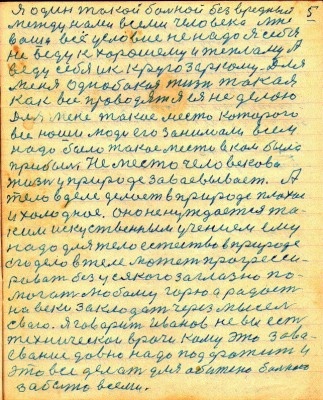 5
Я один такой больной без вредный
между нами всеми человек. Мне
ваши все условие не надо я себя
не веду к хорошему и теплому А
веду себя и к
меня однобокая жизнь такая
как все проводят я не делаю
Для мене такое место которого
все наши люди его занимали всем
надо было такое место в ком было
прибыль Не место человека
жизни природе завоевывает. А
тело в деле делает в природе плохое
и холодное. Оно не нуждается та-
ким искуственным учением ему
надо для тело естество в природе
его дело в теле может прогресси-
ровать без усякого заглазно по-
могат любому горю а радост
на веки закладат через мысел
свою. Я говорит Иванов не вы есть
технической врачи кому это
давно надо подражит и
это все делат для обижено больного
забыто всеми.